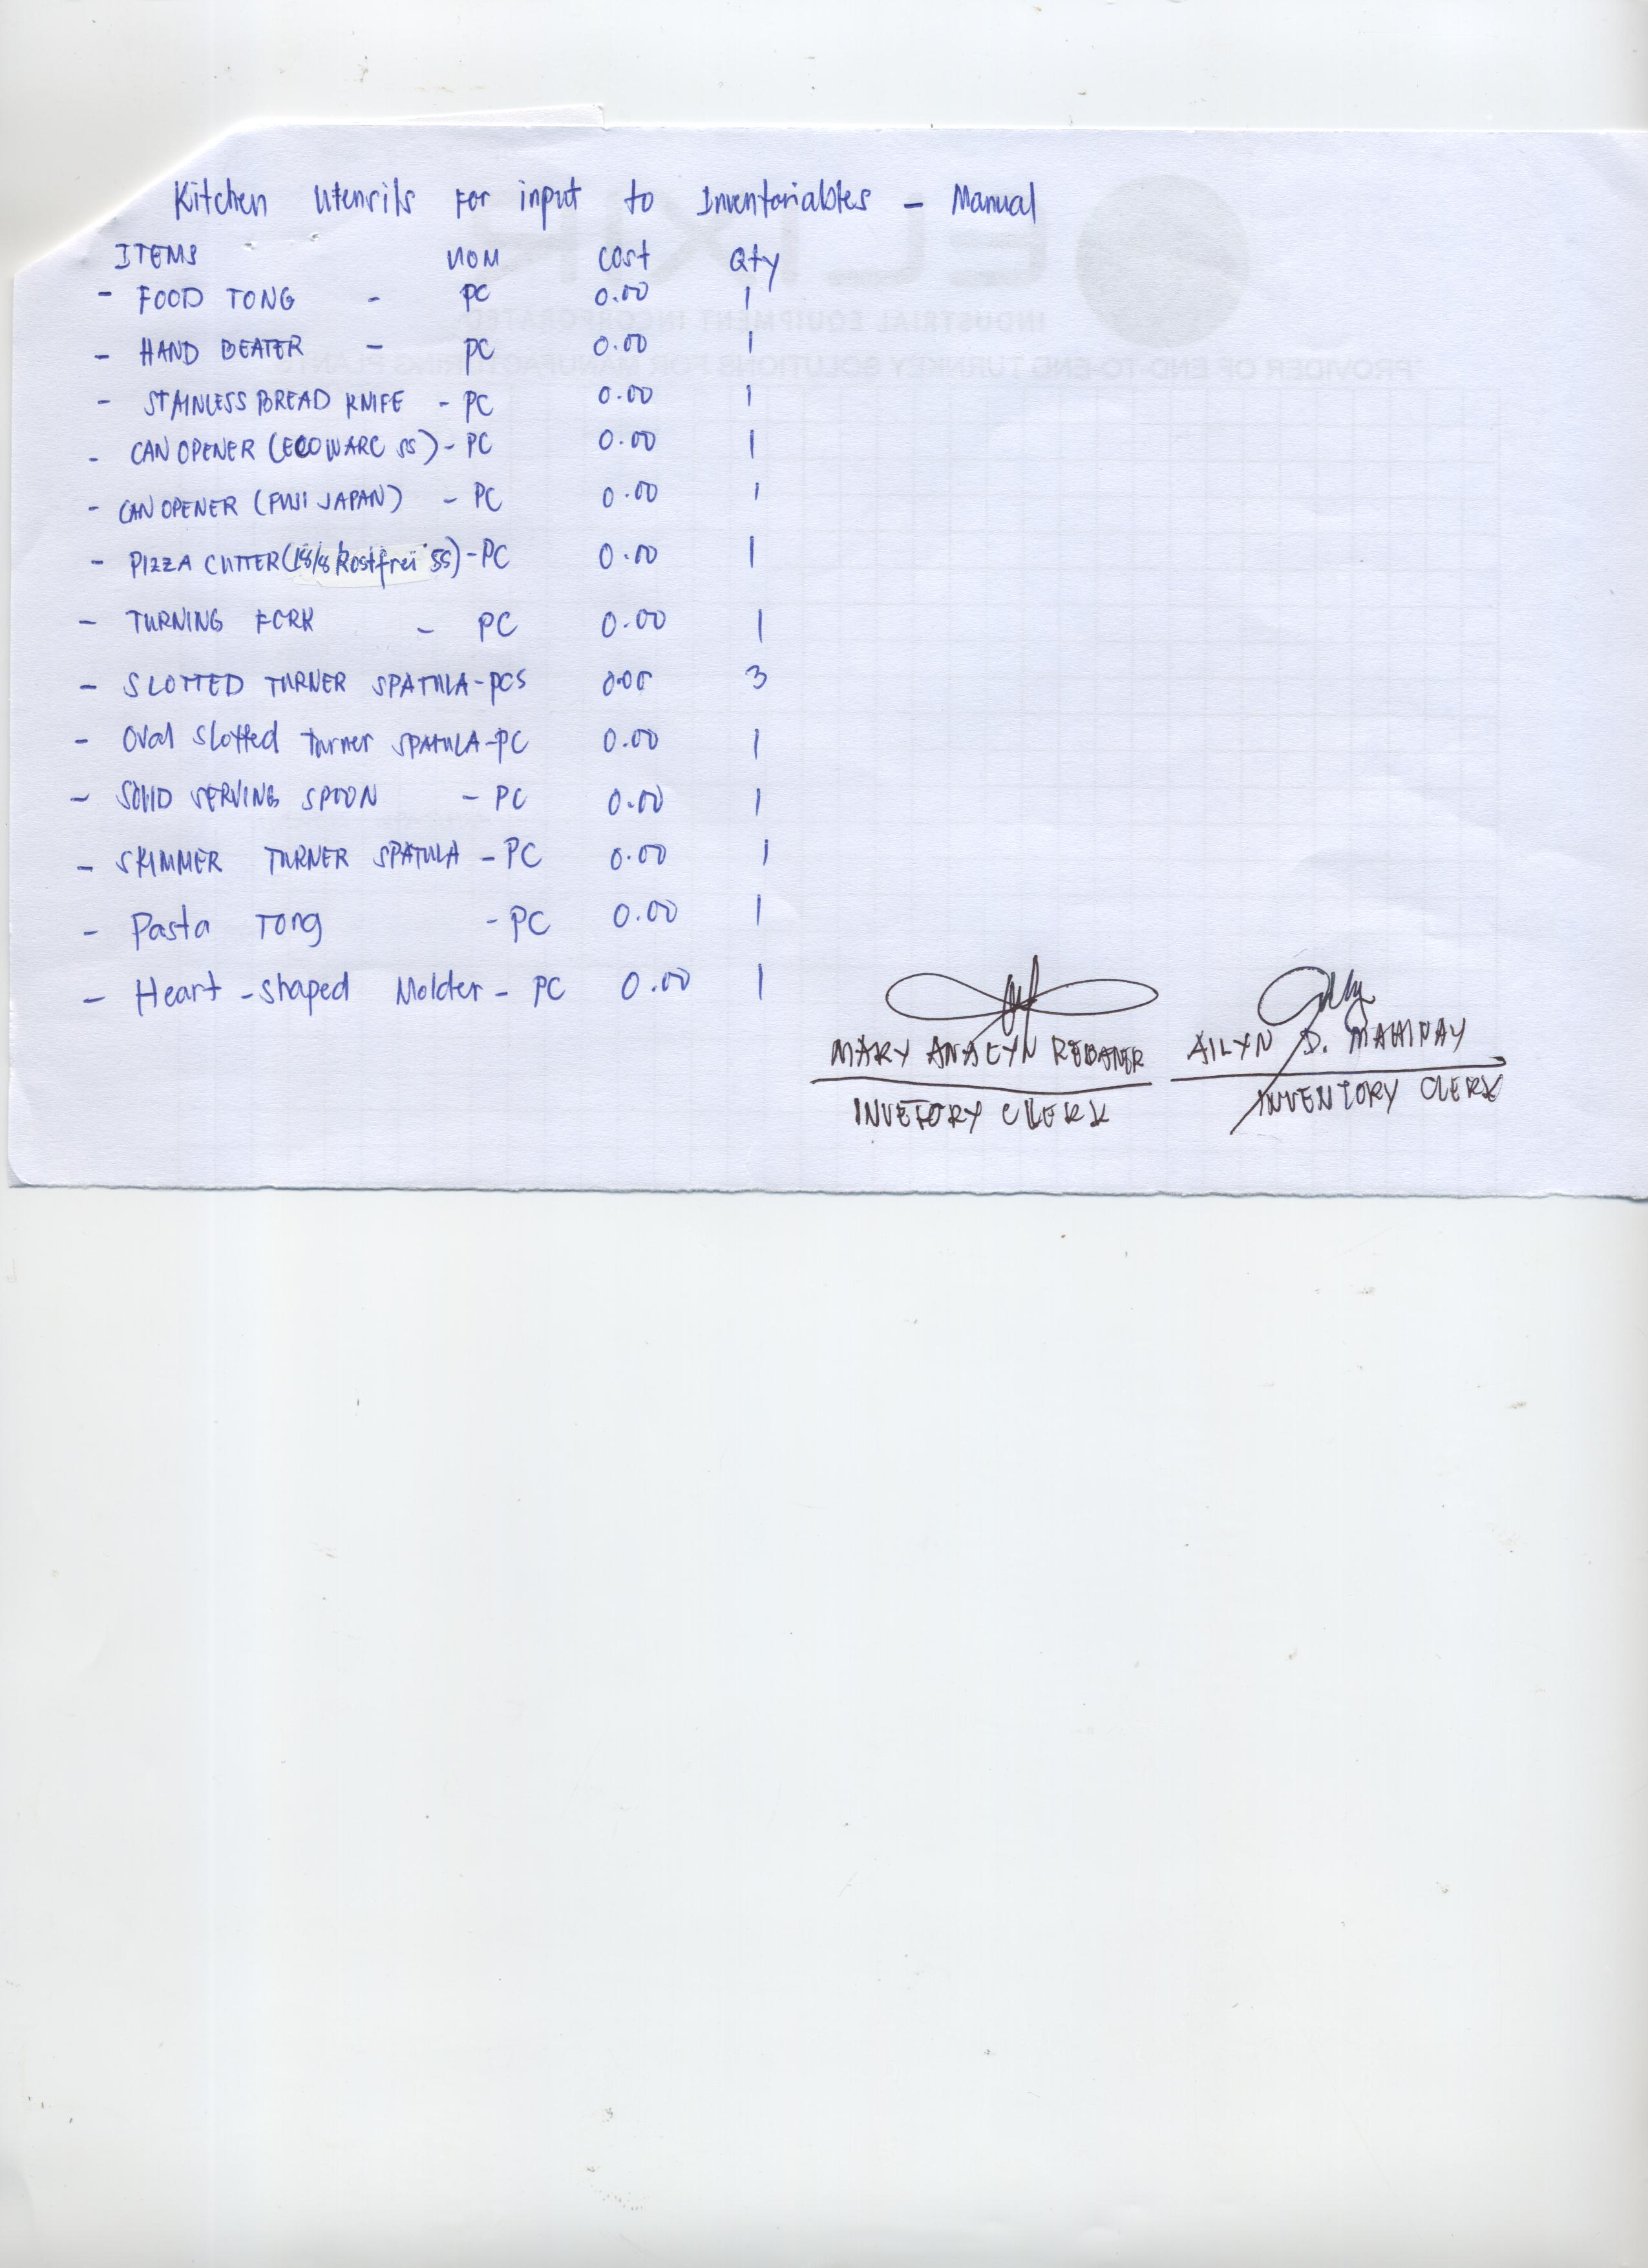 Kitchen Utensils For input to Inventoriables - Manual
ITEMS UOM Cost Qty
- FOOD TONG - PC 0.00 1
- HAND BEATER - PC 0.00 1
- STAINLESS BREAD KNIFE - PC 0.00 1
- CAN OPENER (ECOWARC SS) - PC 0.00 1
- CAN OPENER (FUJI JAPAN) - PC 0.00 1
- PIZZA CUTTER (18/8 Rostfrei SS) - PC 0.00 1
- TURNING FORK - PC 0.00 1
- SLOTTED TURNER SPATULA - PCS 0.00 3
- Oval Slotted Turner SPATULA - PC 0.00 1
- SOLID SERVING SPOON - PC 0.00 1
- SKIMMER TURNER SPATULA - PC 0.00 1
- Pasta Tong - PC 0.00 1
- Heart-shaped Molder - PC 0.00 1
MARY ANALYN AILYN D. MAHINAY
INVETORY CLERK INVENTORY CLERK
INDUSTRIAL EQUIPMENT INCORPORATED
PROVIDER OF END-TO-END TURNKEY SOLUTIONS FOR MANUFACTURING PLANTS